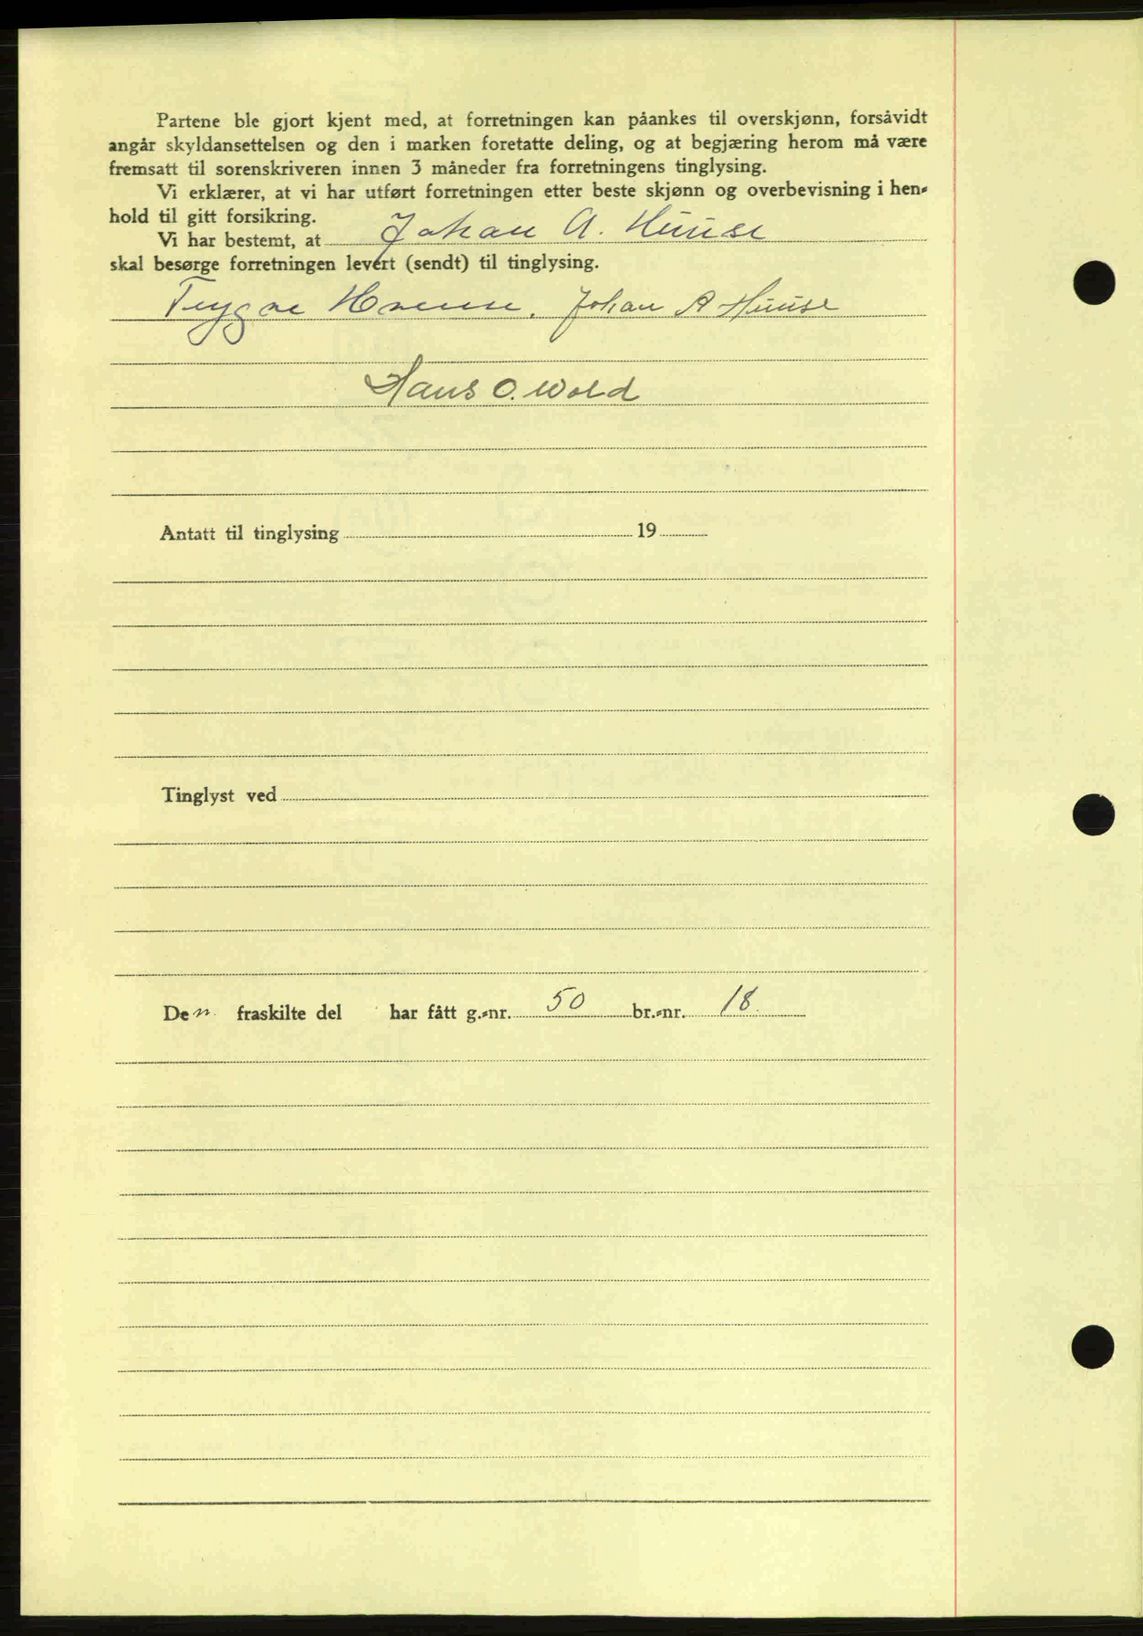 Partene ble gjort kjent med, at forretningen kan påankes til overskjønn, forsåvidt
angår skyldansettelsen og den i marken foretatte deling, og at begjæring herom må være
fremsatt til sorenskriveren innen 3 måneder fra forretningens tinglysing.
Vi erklærer, at vi har utført forretningen etter beste skjønn og overbevisning i hen-
hold til gitt forsikring.
Vi har bestemt, at Johan A. Huuse
skal besørge forretningen levert (sendt) til tinglysing.
Trygve Johan A Huuse
Hans O. Wold
Antatt til tinglysing 19
Tinglyst ved
Den fraskilte del har fått g.-nr. 50 br.-nr. 18.